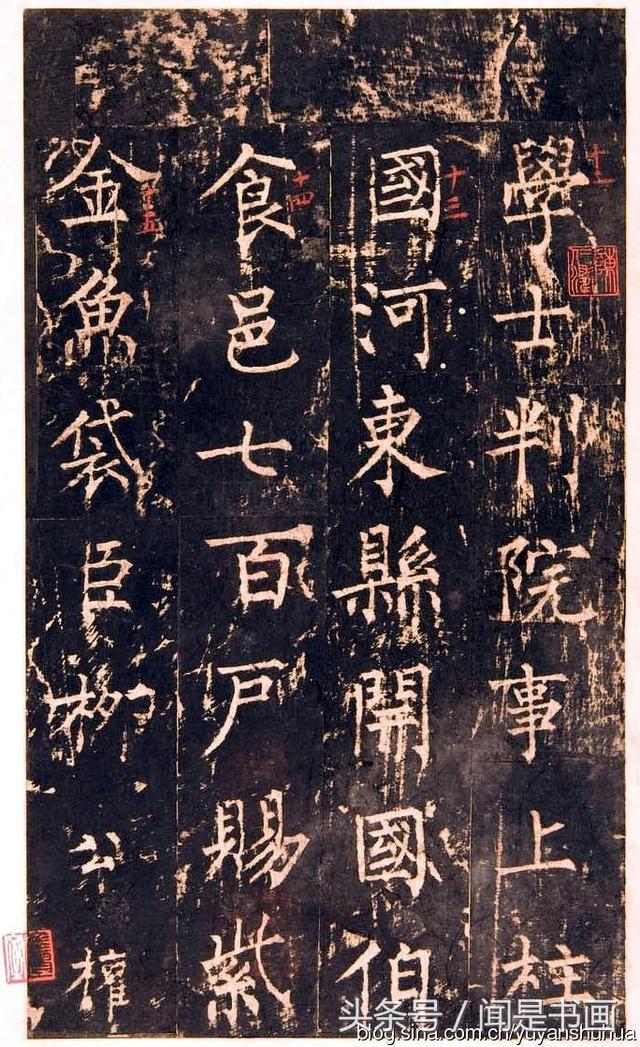 學士判院事上柱
國河東縣開國伯
食邑七百戶賜紫
金魚袋臣柳公權
十三
十四
十五
头条号 / 闻是书画
blog.sina.com.cn/yuyanshunua